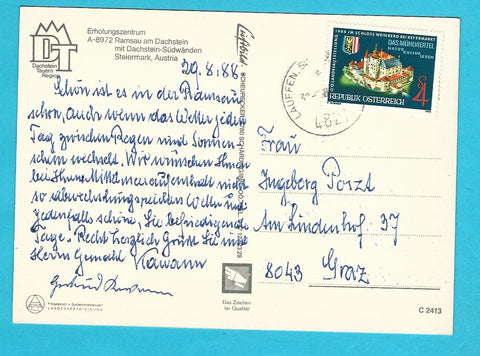 Erholungszentrum
A-8972 Ramsau am Dachstein
mit Dachstein-Südwänden
Steiermark, Austria
DT
Dachstein
Tauern
Region
29.8.88
Schön ist es in der Ramsau
schon, auch wenn das Wetter jeden
Tag zwischen Regen und Sonnen-
schein wechselt. Wir wünschen Ihnen
bei Ihrem Mittelmeeraufenthalt nicht
so abwechslungsreiches Wetter und
jedenfalls schöne, Sie befriedigende
Tage. Recht herzlich Grüße Sie und
Herrn Gemahl
Gertrud
LANDESVERTEIDIGUNG
Das Zeichen
für Qualität
C 2413
LAUFFEN
482
OÖ LANDESAUSSTELLUNG 1988 IM SCHLOSS WEINBERG BEI KEFERMARKT
DAS MÜHLVIERTEL
NATUR KULTUR
LEBEN
S 4
REPUBLIK ÖSTERREICH
Frau
Ingeborg Porzt
Am Lindenhof 37
8043 Graz